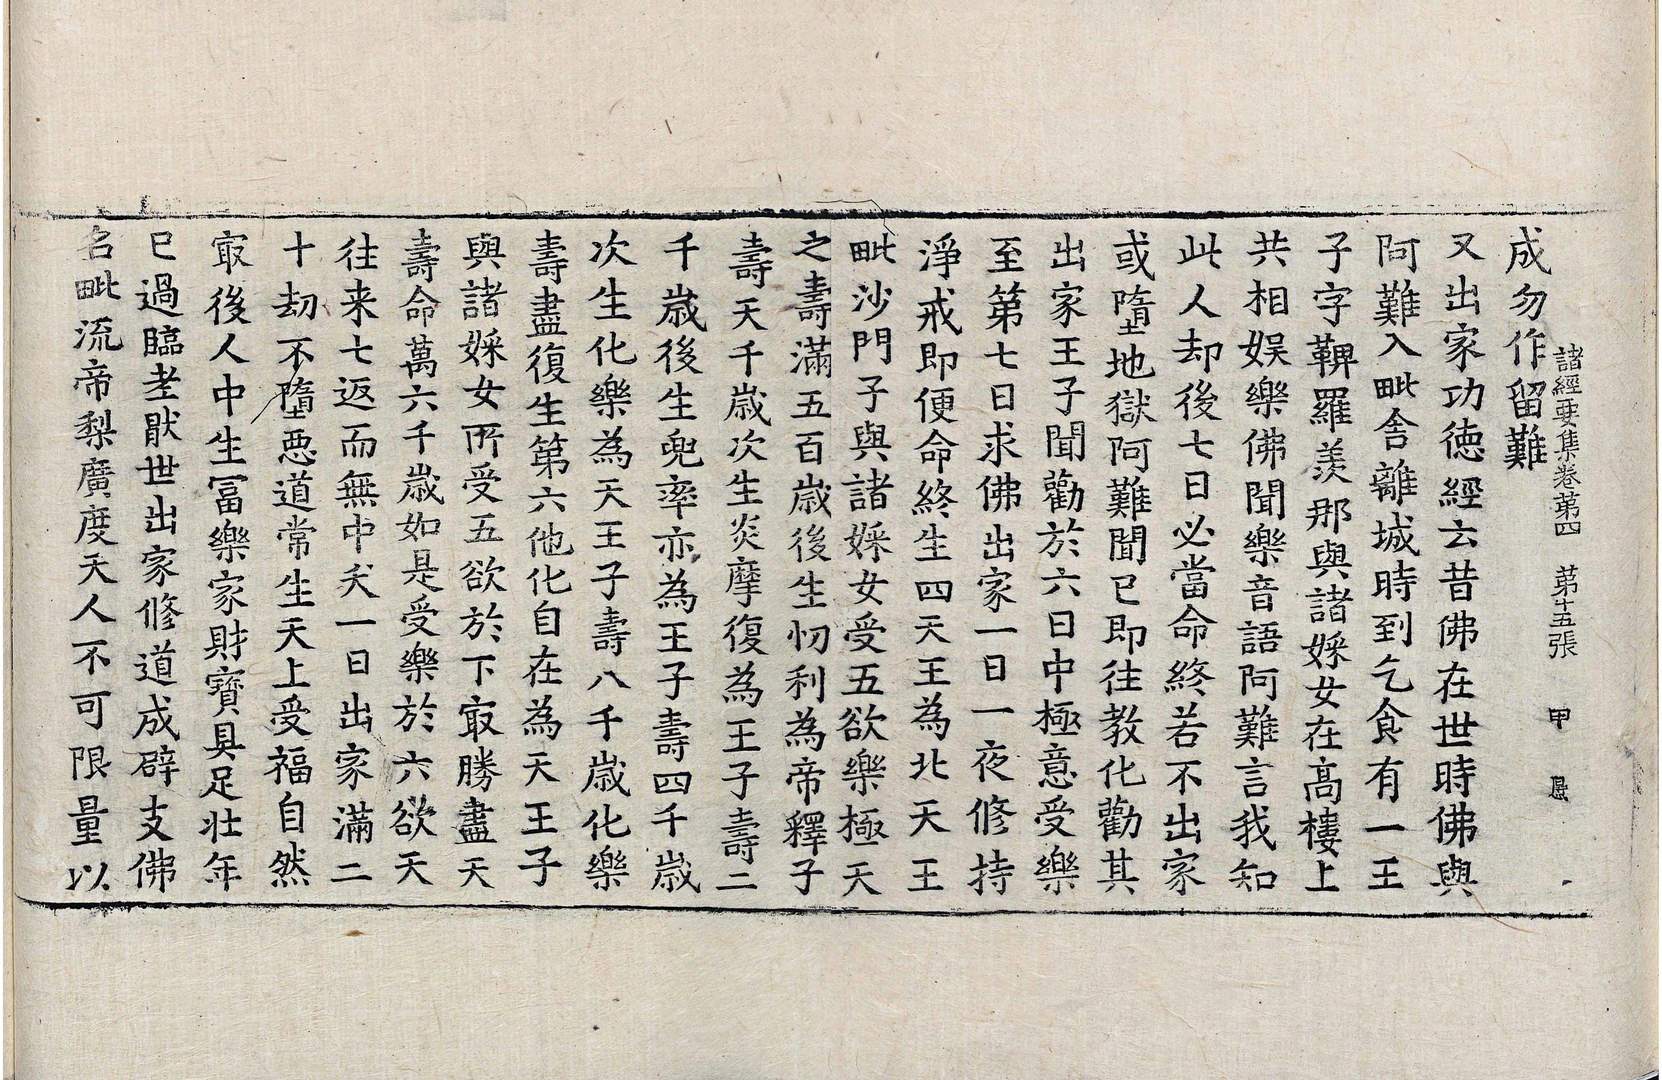 諸經要集卷第四 第十五張 甲
成勿作留難
又出家功徳經云昔佛在世時佛與
阿難入毗舍離城時到乞食有一王
子字鞞羅羨那與諸婇女在髙樓上
共相娛樂佛聞樂音語阿難言我知
此人却後七日必當命終若不出家
或墮地獄阿難聞已即往教化勸其
出家王子聞勸於六日中極意受樂
至第七日求佛出家一日一夜修持
淨戒即便命終生四天王為北天王
毗沙門子與諸婇女受五欲樂極天
之壽滿五百歲後生忉利為帝釋子
壽天千歲次生炎摩復為王子壽二
千歲後生兜率亦為王子壽四千歲
次生化樂為天王子壽八千歲化樂
壽盡復生第六他化自在為天王子
與諸婇女所受五欲於下㝡勝盡天
壽命萬六千歲如是受樂於六欲天
往来七返而無中夭一日出家滿二
十劫不墮惡道常生天上受福自然
㝡後人中生冨樂家財寳具足壯年
已過臨老猒世出家修道成辟支佛
名毗流帝梨廣度天人不可限量以